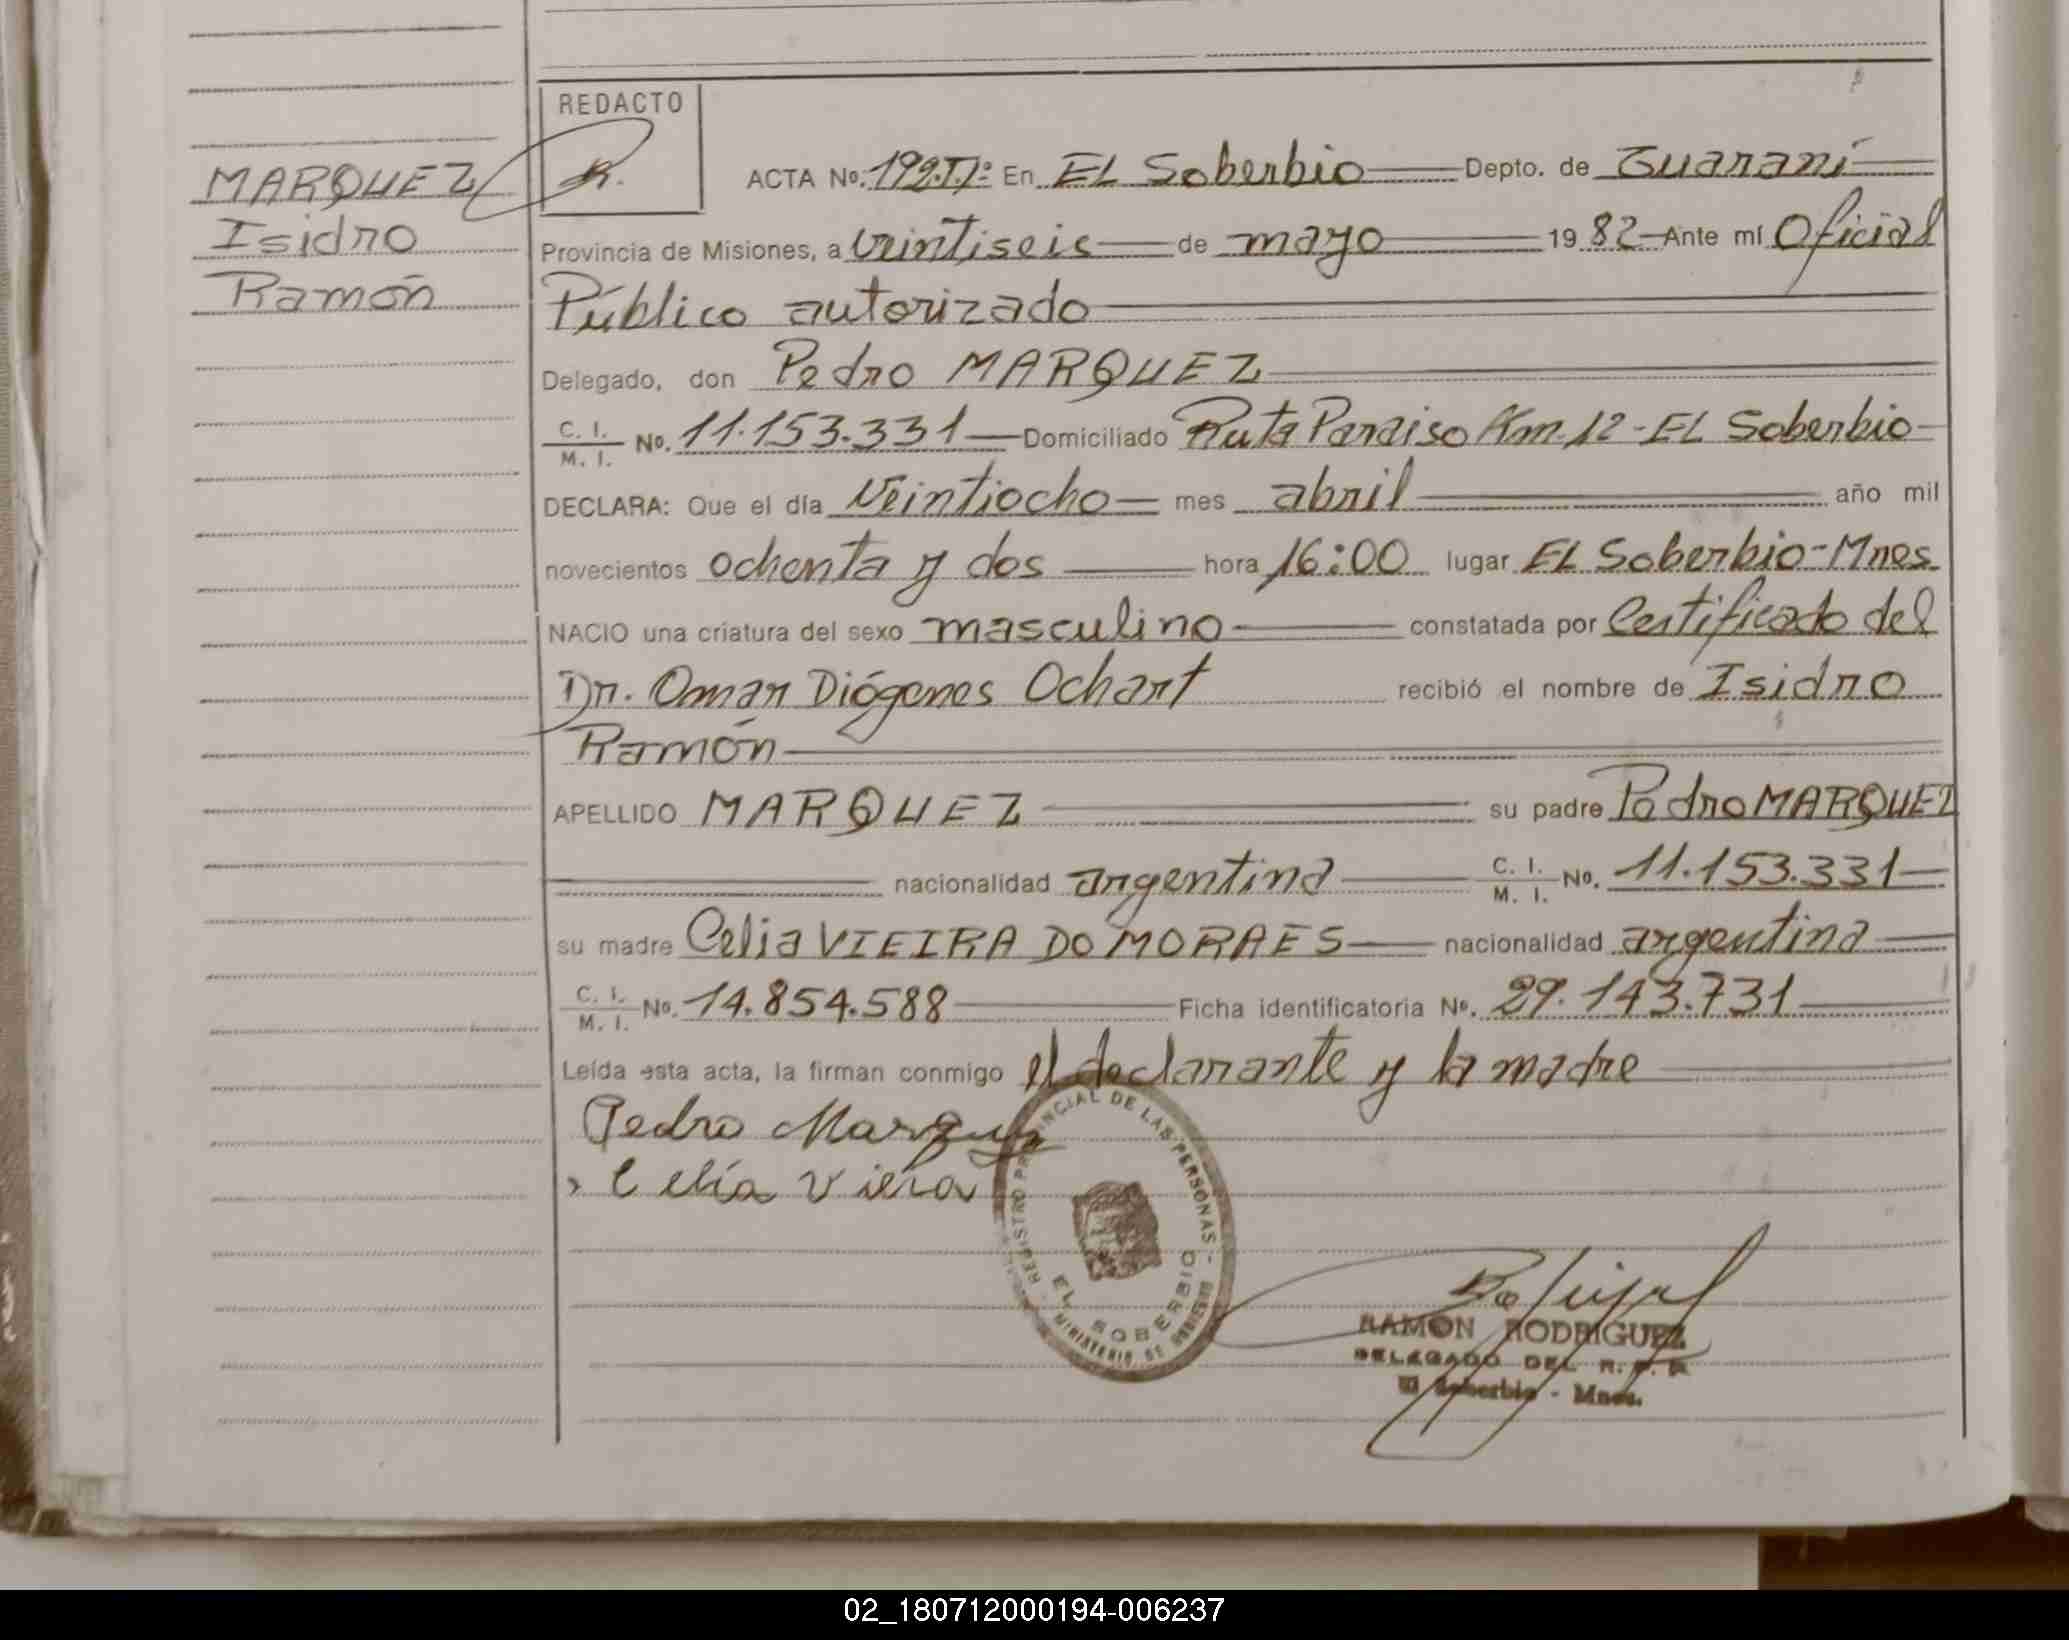 REDACTO
MARQUEZ
Isidro
Ramón
ACTA No. 192.T.1º En EL Soberbio Depto. de Guaraní
Provincia de Misiones, a veintiseis de mayo 1982 Ante mí Oficial
Público autorizado
Delegado, don Pedro MARQUEZ
C. I. M. I. No. 11.153.331 Domiciliado Ruta Paraiso Km. 12 - EL Soberbio
DECLARA: Que el día veintiocho mes abril año mil
novecientos ochenta y dos hora 16:00 lugar EL Soberbio-Mnes
NACIO una criatura del sexo masculino constatada por Certificado del
Dr. Omar Diógenes Ochart recibió el nombre de Isidro
Ramón
APELLIDO MARQUEZ su padre Pedro MARQUEZ
nacionalidad argentina C. I. M. I. No. 11.153.331
su madre Celia VIEIRA DO MORAES nacionalidad argentina
C. I. M. I. No. 14.854.588 Ficha identificatoria No. 29.143.731
Leída esta acta, la firman conmigo el declarante y la madre
Pedro Marquez
Celia Viera
REGISTRO PROVINCIAL DE LAS PERSONAS
EL SOBERBIO
MINISTERIO DE GOBIERNO
RAMON RODRIGUEZ
DELEGADO DEL R. P. P.
El Soberbio - Mnes.
02_180712000194-006237